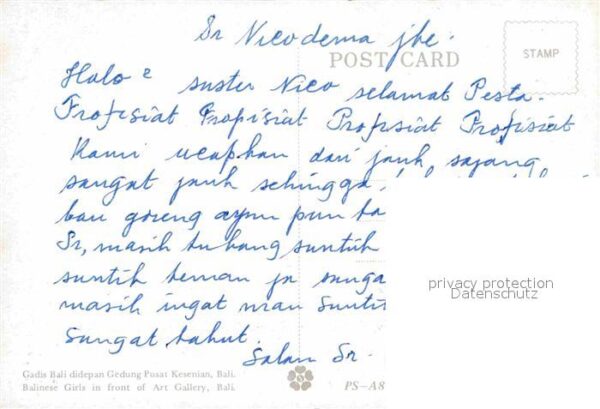 Sr Nicodema jbe.
POST CARD
STAMP
Halo² suster Nico selamat Pesta.
Profisiat Profisiat Profisiat Profisiat
Kami ucapkan dari jauh, sajang
sangat jauh sehingga
bau goreng ayam pun ta
Sr, masih tukang suntik
suntik teman ja sunga
masih ingat mau Suntik
Sangat takut.
Salam Sr.
privacy protection
Datenschutz
Gadis Bali didepan Gedung Posat Kesenian, Bali.
Balinese Girls in front of Art Gallery, Bali.
PS-A8